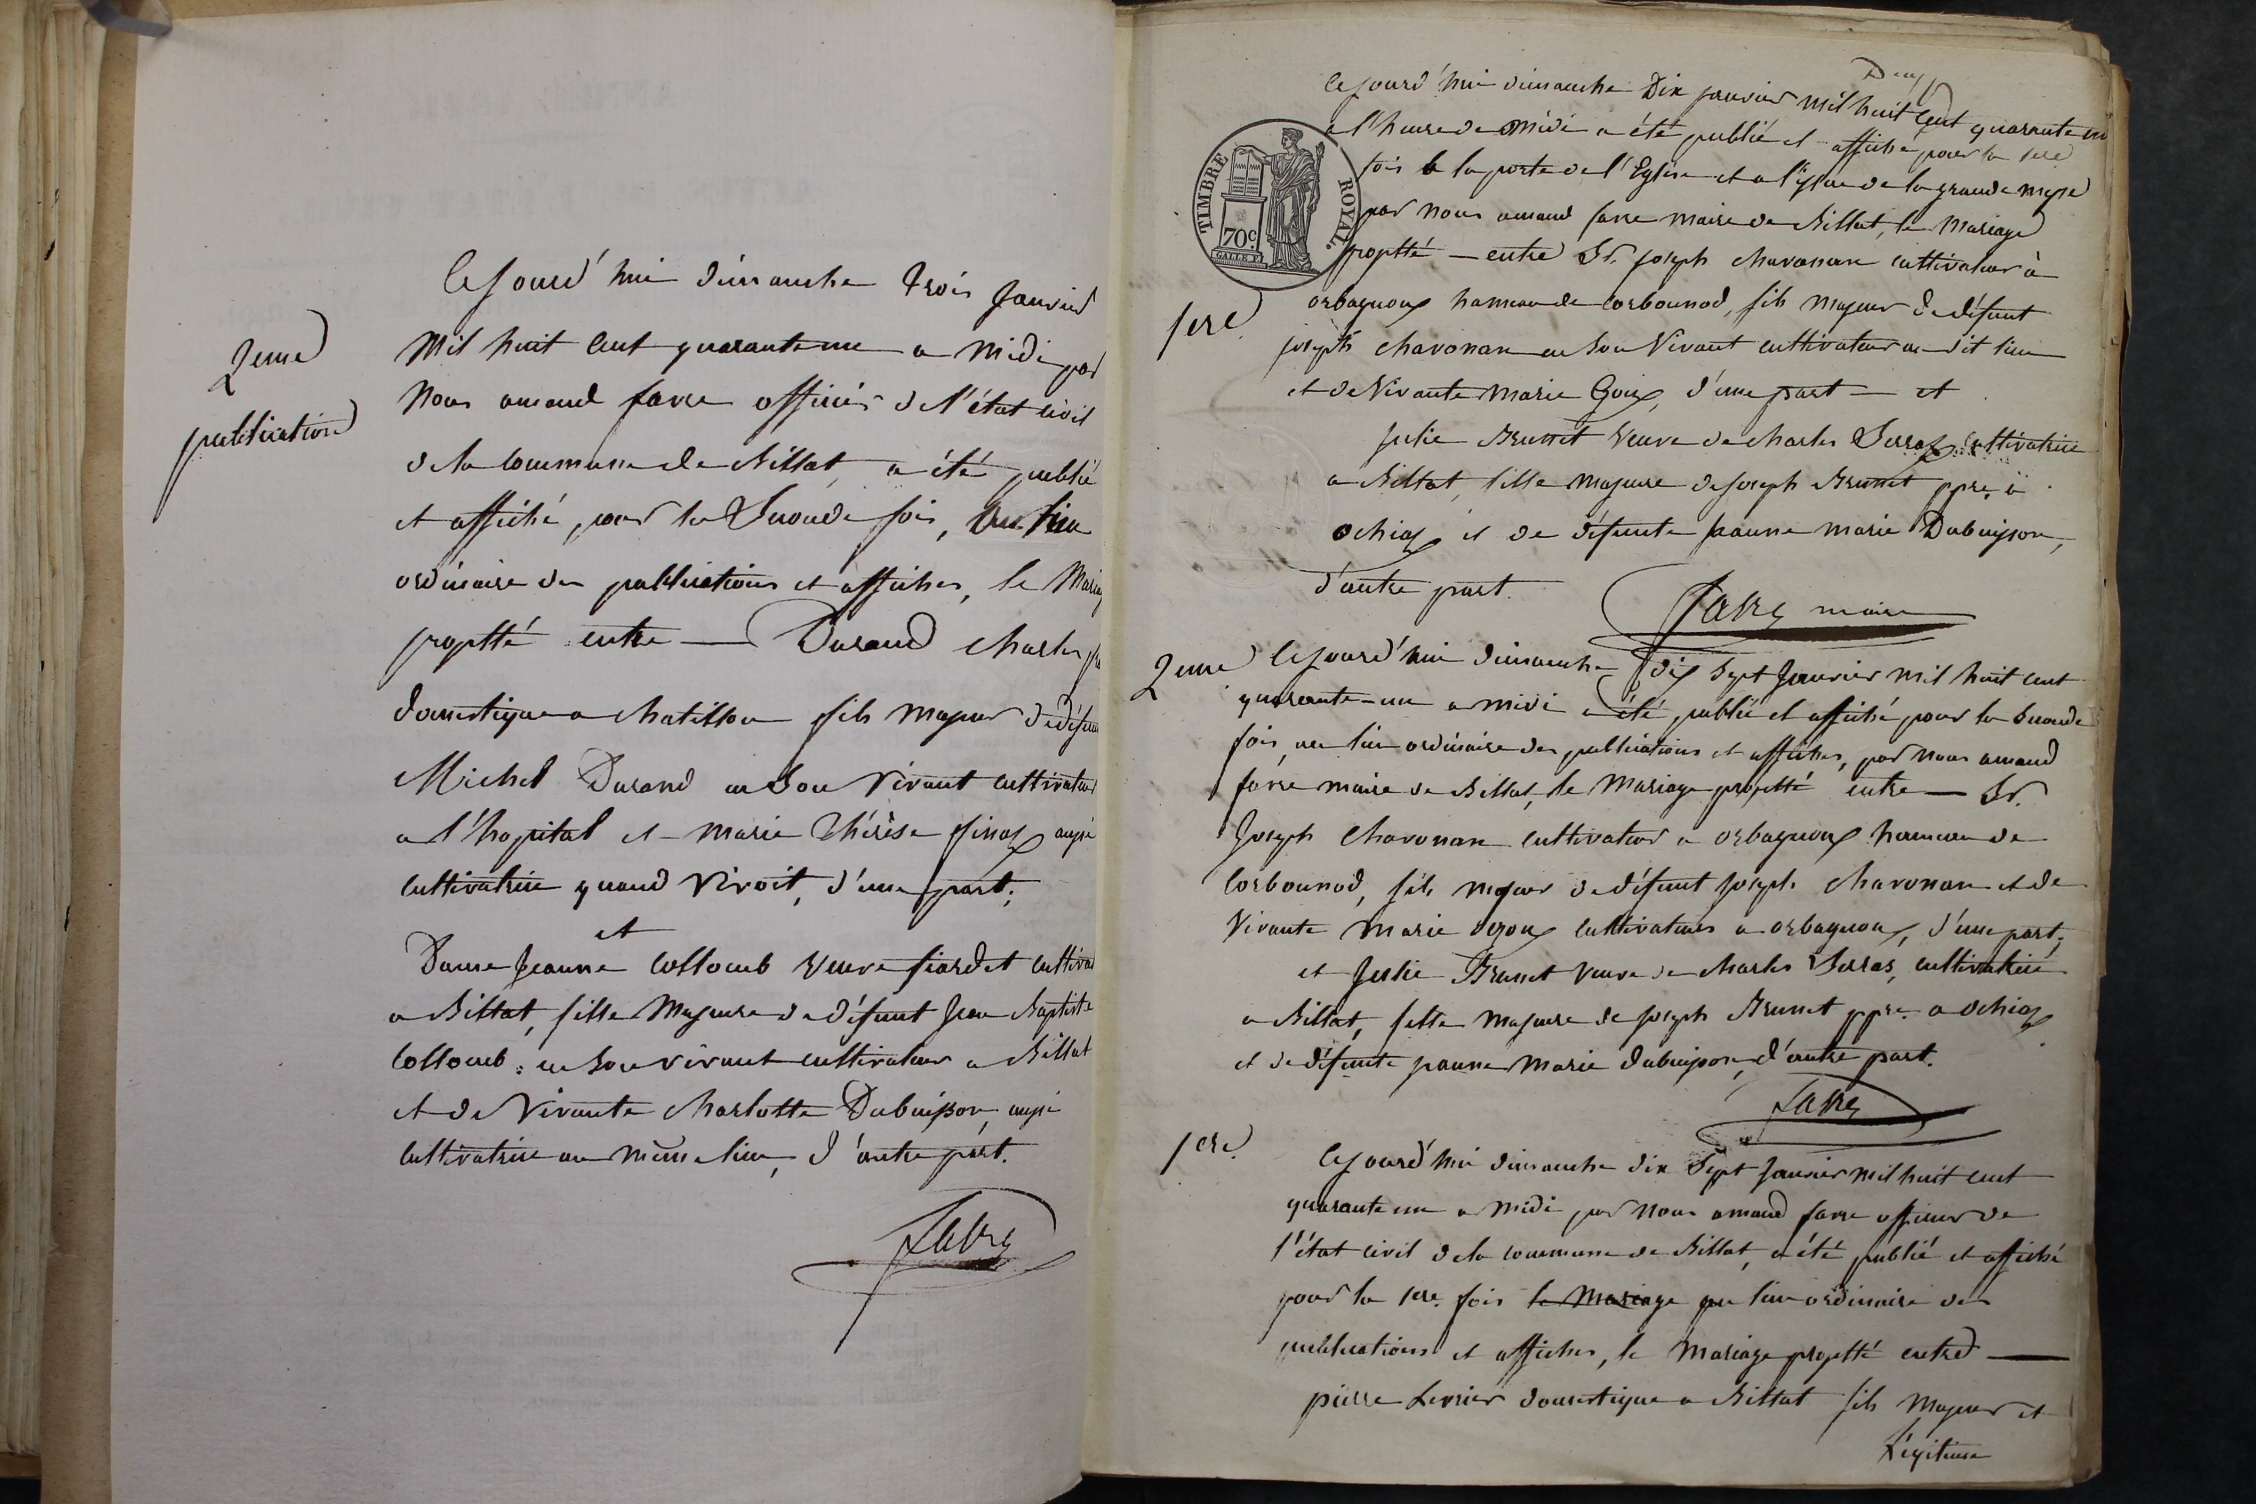 2eme
publication
Cejourd'hui dimanche trois janvier
mil huit cent quarante un a midi par
nous amand favre officier de l'état civil
de la commune de Billat, a été publié
et affiché, pour la seconde fois, au lieu
ordinaire des publications et affiches, le Mariag
projetté entre — Durand charles
domestique a chatillon fils majeur de défun
Michel Durand en son vivant cultivateur
a l'hopital et marie thérèse finaz aussi
cultivatrice quand vivoit, d'une part;
et
Dame Jeanne Collomb veuve fiardet cultiva
a Billat, fille majeure de défunt Jean Baptiste
Collomb en son vivant cultivateur a Billat
et de vivante charlotte Dubuisson, aussi
cultivatrice au même lieu, d'autre part.
favre
Deux
Cejourd'hui dimanche Dix janvier mil huit Cent quarante un
a l'heure de midi a été publié et affiché pour la 1ere
fois a la porte de l'Eglise et a l'issue de la grande messe
par nous amand favre maire de Billat, le mariage
projetté — entre Sr. joseph chavanon cultivateur à
orbagnoux hameau de Corbonod, fils majeur de défunt
joseph chavanon en son vivant cultivateur au dit lieu
et de vivante marie Goix, d'une part — et
julie Brunet veuve de charles Serraz cultivatrice
a Billat, fille majeure de joseph Brunet ppre. à
ochiaz et de défunte jeanne marie Dubuisson,
d'autre part.
favre maire
TIMBRE ROYAL.
70c
1ere
2eme
Cejourd'hui dimanche dix sept janvier mil huit cent
quarante-un a midi a été publié et affiché pour la seconde
fois, au lieu ordinaire des publications et affiches, par nous amand
favre maire de Billat, le mariage projetté entre — Sr.
Joseph chavanon cultivateur a orbagnoux hameau de
Corbonod, fils majeur de défunt joseph chavanon et de
vivante marie cultivateurs a orbagnoux, d'une part,
et Julie Brunet veuve de charles Serras, cultivatrice
a Billat, fille majeure de joseph Brunet ppre. a ochiaz
et de défunte jeanne marie dubuisson, d'autre part.
favre
1ere.
Cejourd'hui dimanche dix sept janvier mil huit cent
quarante un a midi par nous amand favre officier de
l'état civil de la commune de Billat, a été publié et affiché
pour la 1ere. fois le mariage au lieu ordinaire des
publications et affiches, le mariage projetté entre —
pierre Levrier domestique a Billat fils majeur et
Légitime